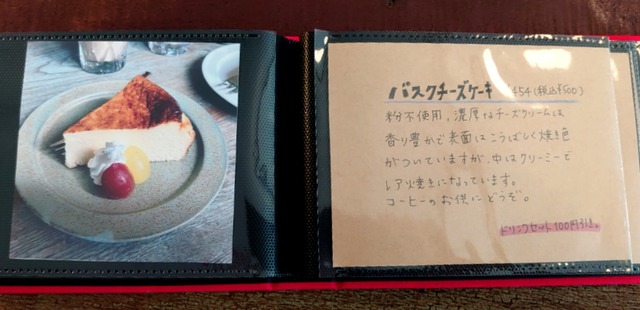 バスクチーズケーキ ¥454(税込¥500)
粉不使用、濃厚なチーズクリームは
香り豊かで表面はこうばしく焼き色
がついていますが、中はクリーミーで
レア焼きになっています。
コーヒーのお供にどうぞ。
ドリンクセット100円引き。